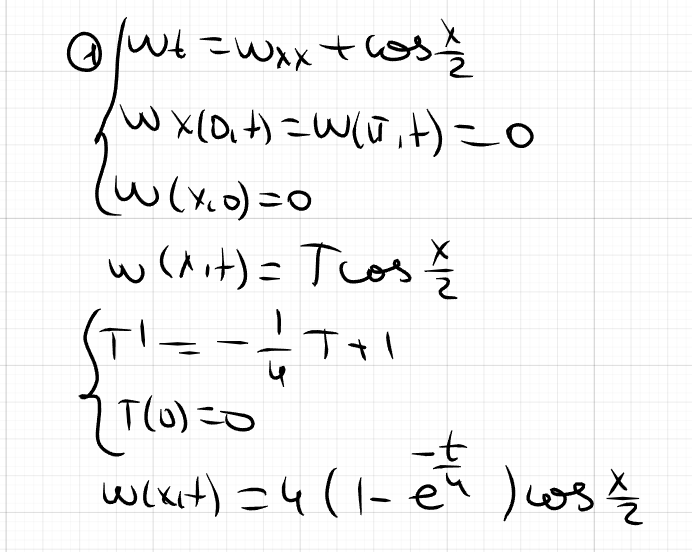 ① { wt = wxx + cos x/2
wx(0,t) = w(π,t) = 0
w(x,0) = 0
w(x,t) = T cos x/2
{ T' = -1/4 T + 1
T(0) = 0
w(x,t) = 4(1 - e^(-t/4)) cos x/2